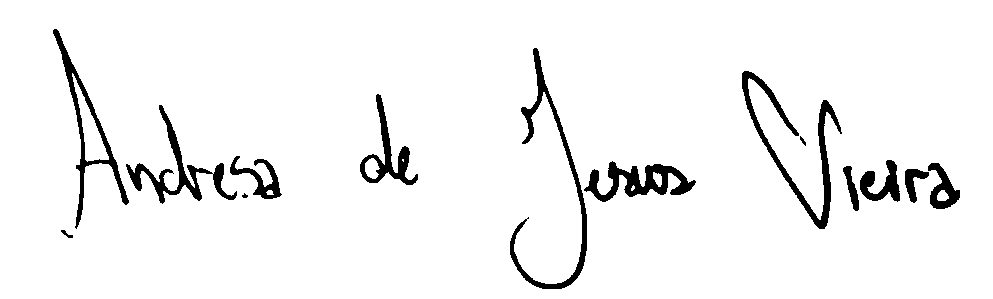 Andresa de Jesus Vieira